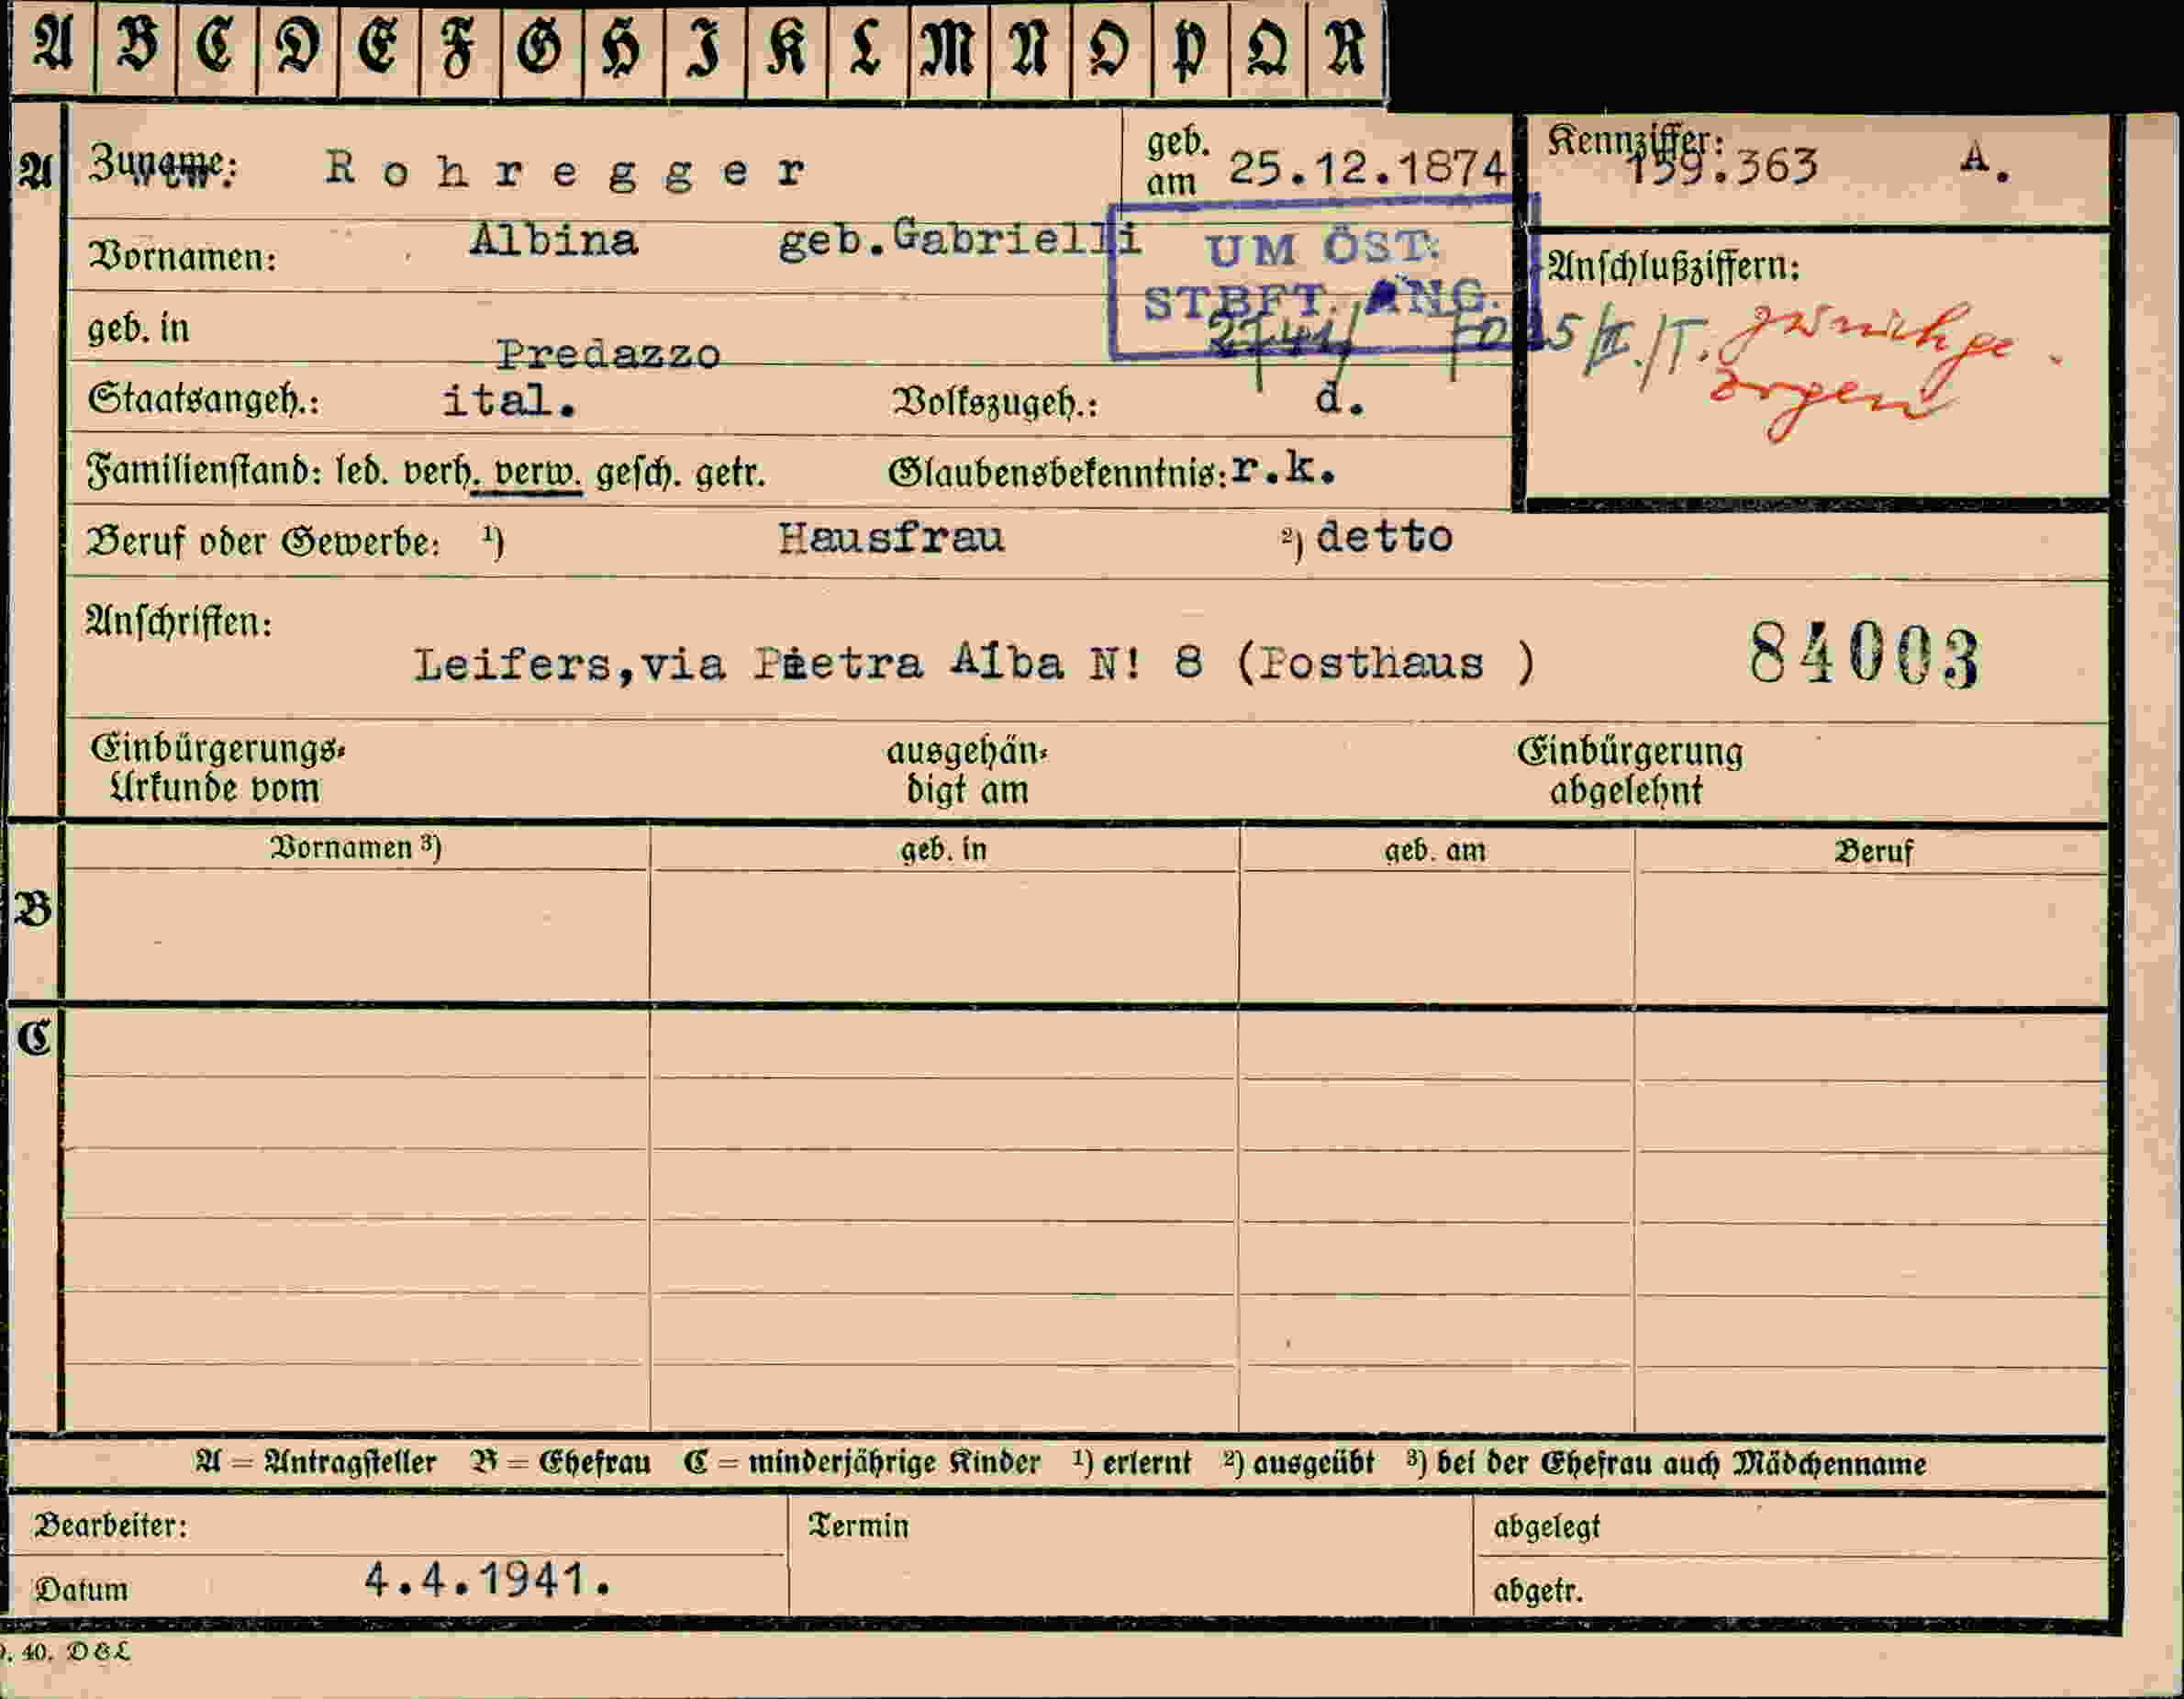 A B C D E F G H I K L M N O P Q R
A Zuname: Rohregger geb. am 25.12.1874 Kennziffer: 159.363 A.
Vornamen: Albina geb.Gabrielli
UM ÖST.
STBFT. ANG.
Anschlußziffern:
geb. in Predazzo
Staatsangeh.: ital. Volkszugeh.: d.
Familienstand: led. verh. verw. gesch. getr. Glaubensbekenntnis: r.k.
Beruf oder Gewerbe: ¹) Hausfrau ²) detto
Anschriften:
Leifers,via Pietra Alba N! 8 (Posthaus ) 84003
Einbürgerungs-Urkunde vom ausgehändigt am Einbürgerung abgelehnt
Vornamen ³) geb. in geb. am Beruf
B
C
A = Antragsteller B = Ehefrau C = minderjährige Kinder ¹) erlernt ²) ausgeübt ³) bei der Ehefrau auch Mädchenname
Bearbeiter: Termin abgelegt
Datum 4.4.1941. abgetr.
40. DGL